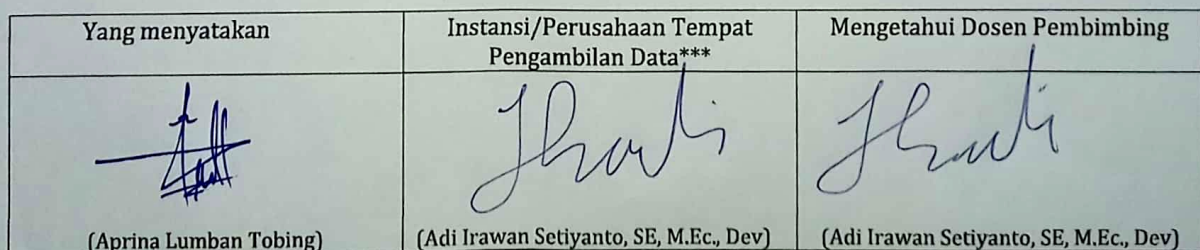 Yang menyatakan
Instansi/Perusahaan Tempat
Pengambilan Data***
Mengetahui Dosen Pembimbing
(Aprina Lumban Tobing)
(Adi Irawan Setiyanto, SE, M.Ec., Dev)
(Adi Irawan Setiyanto, SE, M.Ec., Dev)